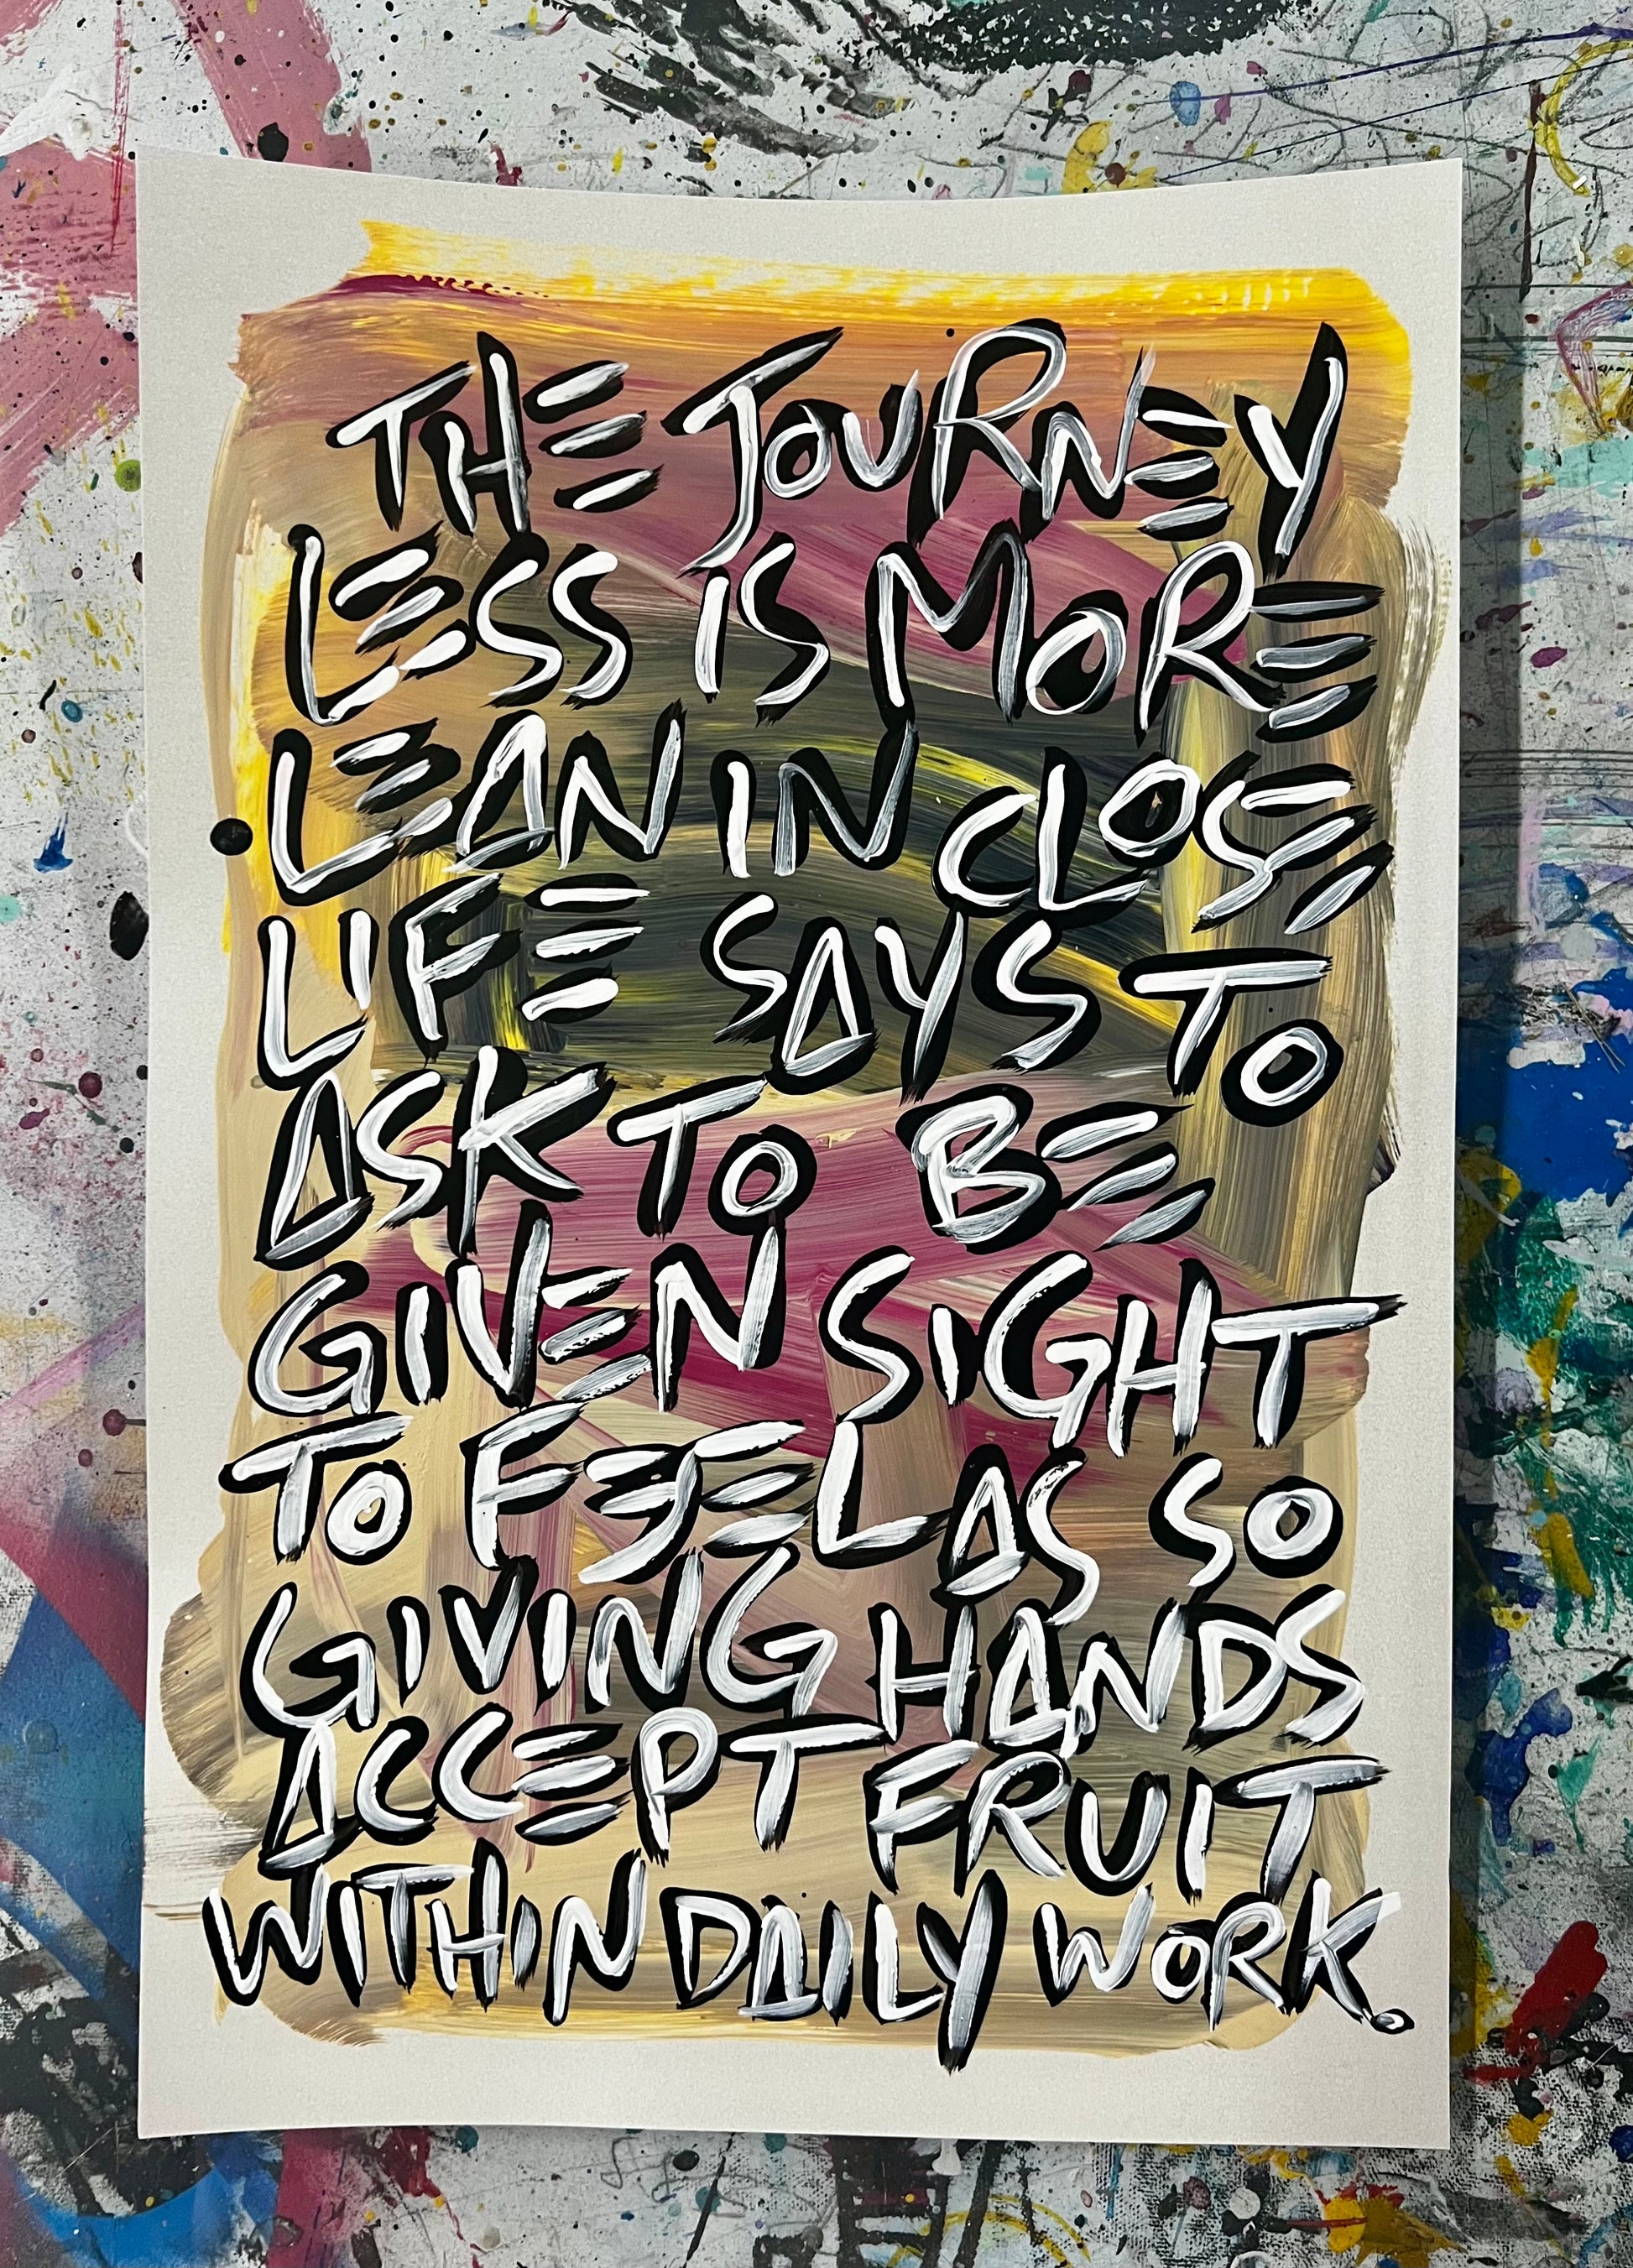 THE JOURNEY
LESS IS MORE
LEAN IN CLOSE,
LIFE SAYS TO
ASK TO BE
GIVEN SIGHT
TO FEEL AS SO
GIVING HANDS
ACCEPT FRUIT
WITHIN DAILY WORK.